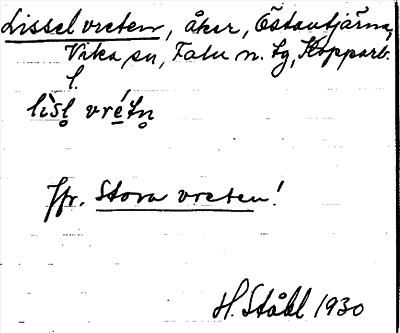 Lisselvreten, åker, Östantjärna,
Vika sn, Falu n. tg, Kopparb.
l.
lìsl̥ vré̱tn̥
Jfr. Stora vreten!
H. Ståhl 1930